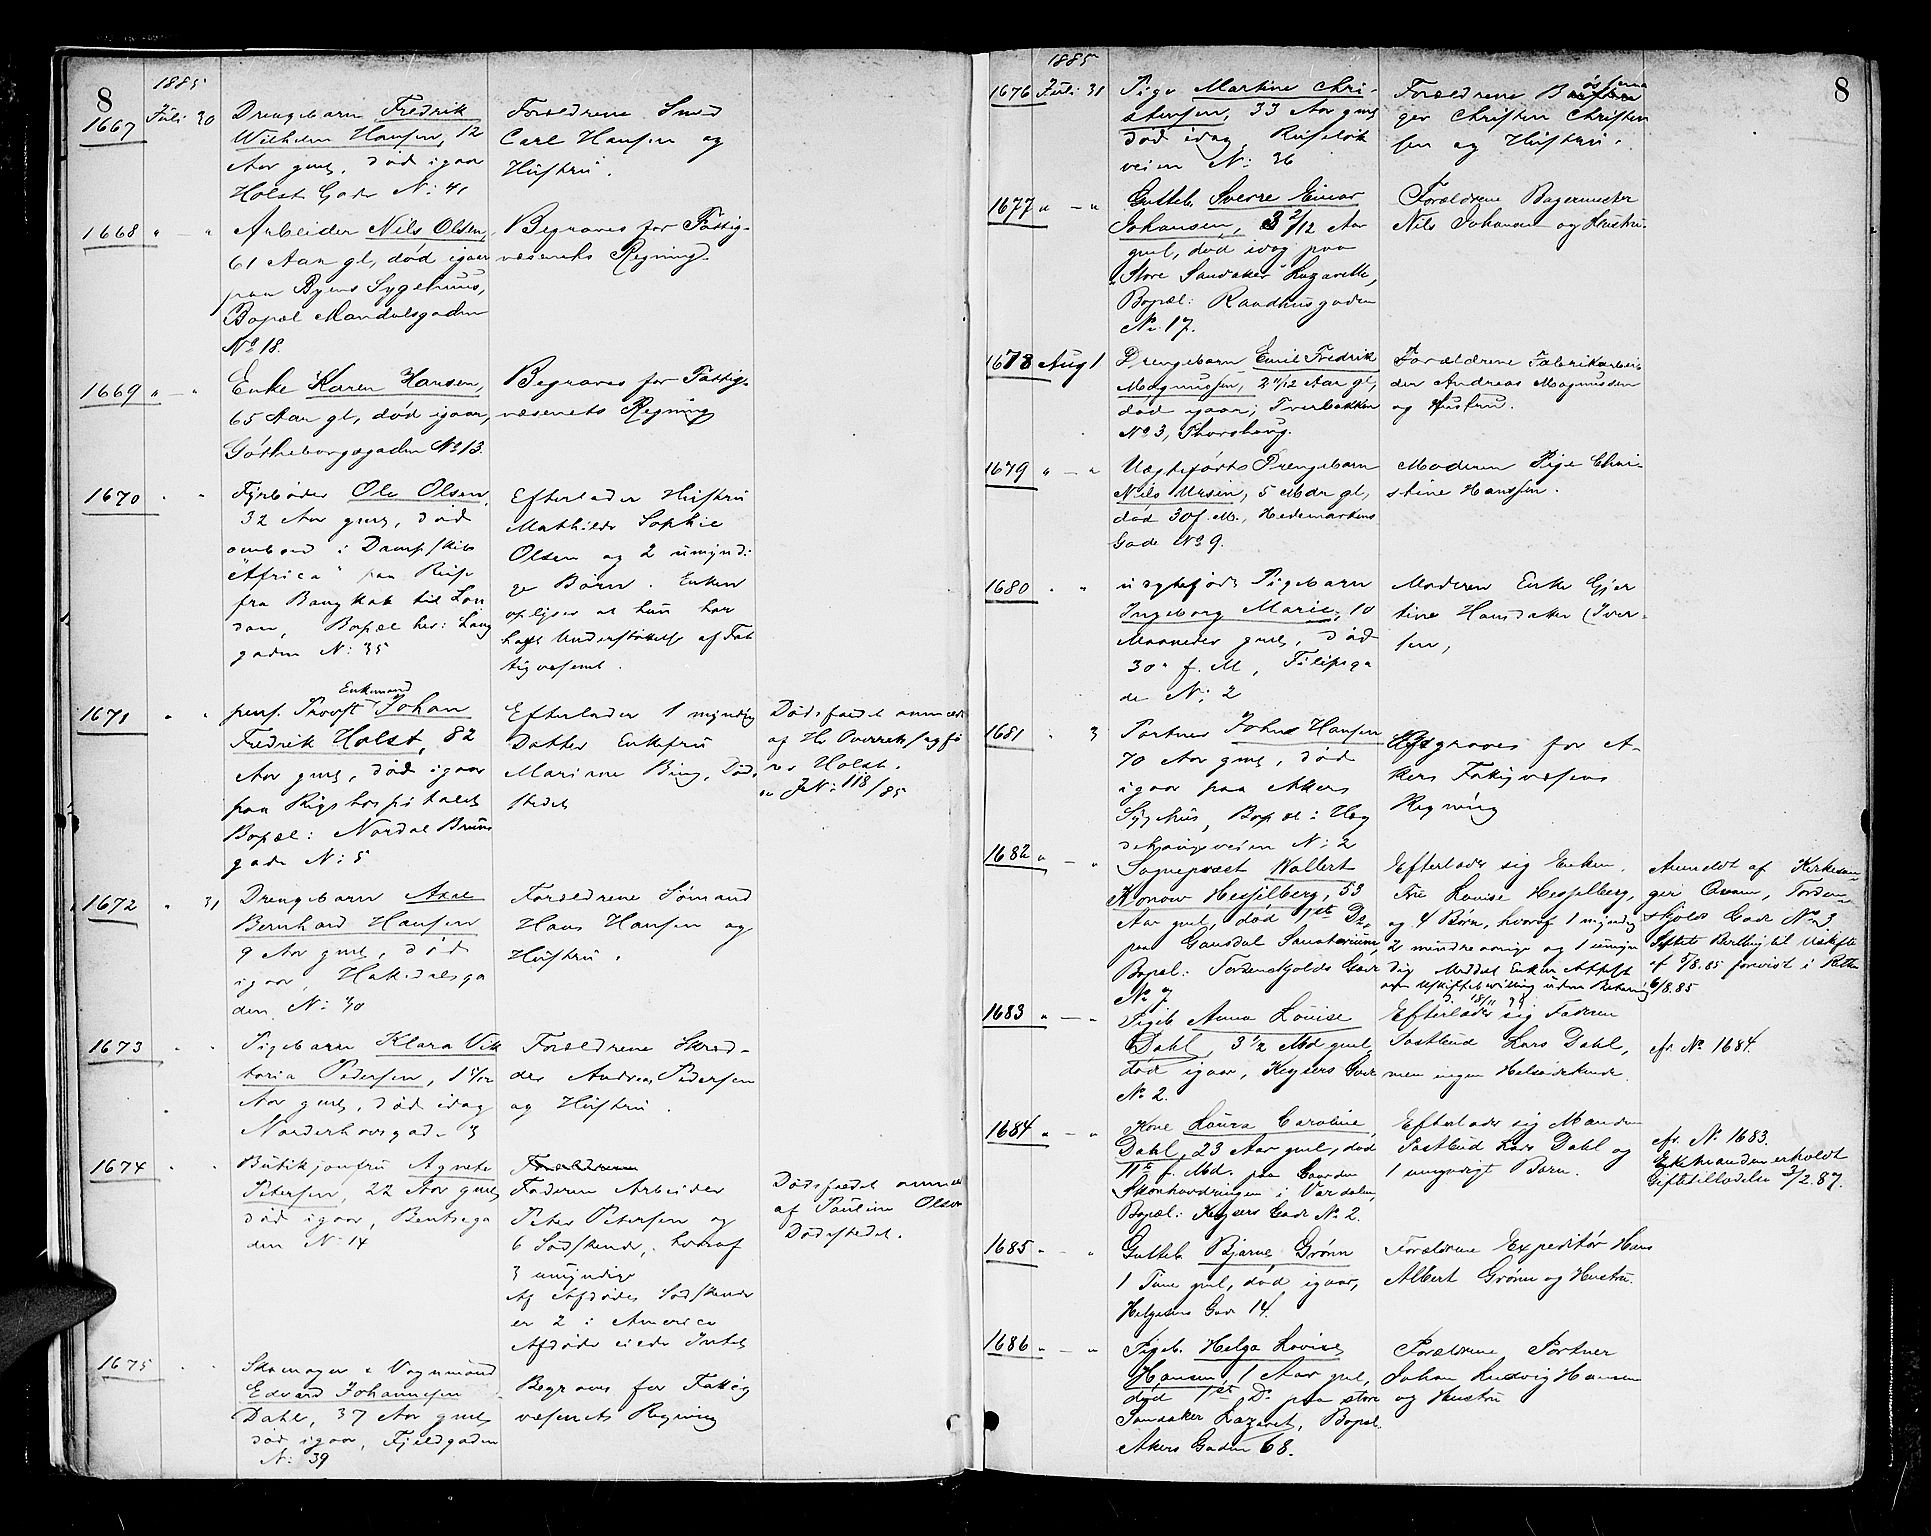 8
1885
1667 Juli 30 Drengebarn Fredrik
Wilhelm Hansen, 12
Aar gml, død igaar
Holst Gade N: 41
Forældrene Smed
Carl Hansen og
Hustru.
1668 " — " Arbeider Nils Olsen,
61 Aar gl, død igaar
paa Byens Sygehuus,
Bopæl Mandalsgaden
No 18.
Begraves for Fattig-
væsenets Regning.
1669 " — " Enke Karen Hansen,
65 Aar gl, død igaar,
Gøtheborgsgaden No 13.
Begraves for Fattig-
væsenets Regning
1670 " " Fyrbøder Ole Olsen,
32 Aar gml, død
ombord i Dampskibet
"Africa" paa Reise
fra Bangkok til Lon
don, Bopæl her: Lang
gaden N: 35
Efterlader Hustru
Mathilde Sophie
Olsen og 2 umyndi
ge Børn. Enken
oplyser at hun har
havt Understøttelse af Fat
tigvæsenet.
1671 " " pens. Provst Enkemand Johan
Fredrik Holst, 82
Aar gml, død igaar
paa Rigshospitalet
Bopæl: Nordal Bruns
gade N: 5
Efterlader 1 myndig
Datter Enkefru
Marianne Bing, Død
stedet
Dødsfaldet anmeldt
af Hr Overretssagfø
rer Holst.
JN: 118/85
1672 " 31 Drengebarn Axel
Bernhard Hansen
9 Aar gml, død
igaar, Hakedalsga
den N: 30
Forældrene Sømand
Hans Hansen og
Hustru.
1673 " " Pigebarn Klara Vik
toria Pedersen, 1
Aar gml, død idag
Norderhovsgade 3
Forældrene Skræd-
der Andreas Pedersen
og Hustru.
1674 " " Butikjomfru Agnete
Petersen, 22 Aar gml,
død igaar, Bentsega
den N: 14
Forældrene
Faderen Arbeider
Peter Petersen og
6 Sødskende, hvoraf
3 umyndige
Af Afdødes Sødskende
er 2 i America
Afdøde eiede Intet
Dødsfaldet anmeldt
af Pauline Olsen
Dødsstedet.
1675 " " Skomager & Vognmand
Edvard Johannesen
Dahl, 37 Aar gml,
død igaar, Fjeldgaden
N: 39
Begraves for Fattig
væsenets Regning
8
1885
1676 Juli 31 Pige Martine Chri-
stensen, 33 Aar gml,
død idag, Ruseløk
veien N: 36
Forældrene
ger Christen Christen
sen og Hustru.
1677 " — " Gutteb. Sverre Einar
Johansen, 3 2/12 Aar
gml, død idag paa
Store Sandaker Lazareth,
Bopæl: Raadhusgaden
No 17.
Forældrene Bagermester
Nils Johansen og Hustru.
1678 Aug 1 Drengebarn Emil Fredrik
Magnussen, 2 11/12 Aar gl,
død igaar, Tverbakken
No 3, Thorshaug.
Forældrene Fabrikarbei-
der Andreas Magnussen
og Hustru.
1679 " — " Uægtefødte Drengebarn
Nils Ursin, 5 Mdr gl,
død 30 f. M., Hedemarkens
Gade No 9.
Moderen Pige Chri-
stine Hanssen.
1680 " " uægtefødt Pigebarn
Ingeborg Marie, 10
Maaneder gml, død
30' f. M, Filipsga
de N: 2
Moderen Enke Gjer
tine Hansdaker (Iver-
sen,
1681 " 3 Portner Johns Hansen
70 Aar gml, død
igaar paa Akers
Sygehus, Bopæl: Heg
dehaugsveien N: 2
Begraves for A-
kers Fatigvæsens
Regning
1682 " — " Sogneprest Wollert
Konow Hesselberg, 53
Aar gml, død 1ste Ds,
paa Gausdal Sanatorium,
Bopæl: Tordenskjolds Gade
No 7
Efterlader sig Enken,
Fru Louise Hesselberg,
og 4 Børn, hvoraf 1 myndig
2 mindreaarige og 1 umyn
dig. Meddelt Enken Attest
om Uskiftebevilling uden
18/11 99
Anmeldt af Kirkesan-
ger Qvam, Torden-
skjolds Gade No 3.
til Uskifte
af 5/8.85 forevist i Retten
6/8.85
1683 " — " Pigeb. Anna Louise
Dahl, 3 1/2 Md gml,
død igaar, Keysers Gade
No 2.
Efterlader sig Faderen
Postbud Lars Dahl,
men ingen Helsødskende.
cfr. No 1684.
1684 " — " Kone Laura Caroline
Dahl, 23 Aar gml, død
11te f. Md. paa Gaarden
Skonhovdringen i Værdalen,
Bopæl: Keysers Gade No 2.
Efterlader sig Manden
Postbud Lars Dahl og
1 umyndigt Barn.
cfr. No 1683.
Enkemanden erholdt
Giftetilladelse 3/2.87.
1685 " — " Gutteb. Bjarne Grønn
1 Time gml, død igaar,
Helgesens Gade 14.
Forældrene Expeditør Hans
Albert Grønn og Hustru.
1686 " — " Pigeb. Helga Lovise
Hansen, 1 Aar gml,
død 1ste Ds paa store
Sandaker Lazaret, Bopæl.
Akers Gaden 68.
Forældrene Portner
Johan Ludvig Hansen
og Hustru